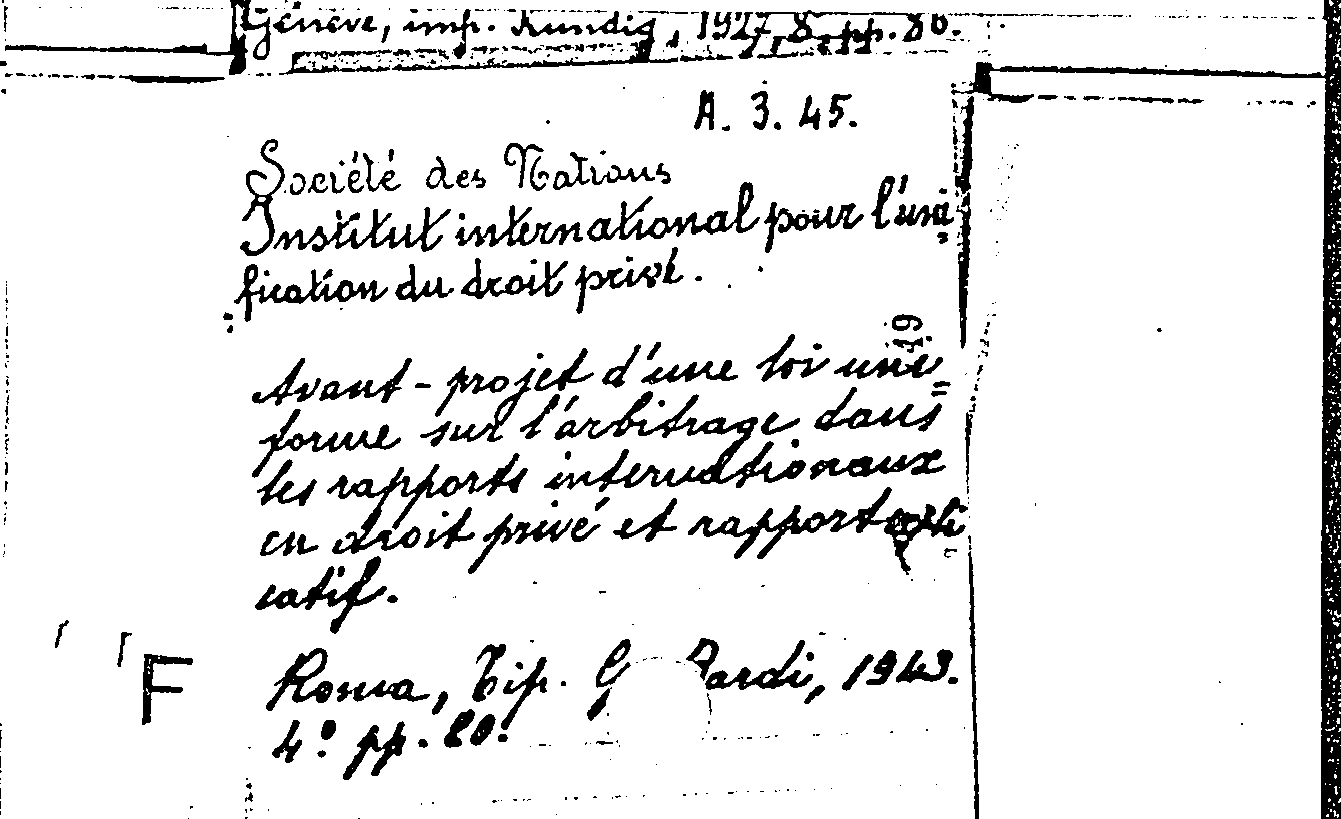 Genève, imp. Kundig, 1927, 8. pp. 86.
A. 3. 45.
Société des Nations
Institut international pour l'uni
fication du droit privé.
49
Avant-projet d'une loi uni=
forme sur l'arbitrage dans
les rapports internationaux
en droit privé et rapport expli
catif.
F
Roma, Tip. G Bardi, 1943.
4° pp. 20.